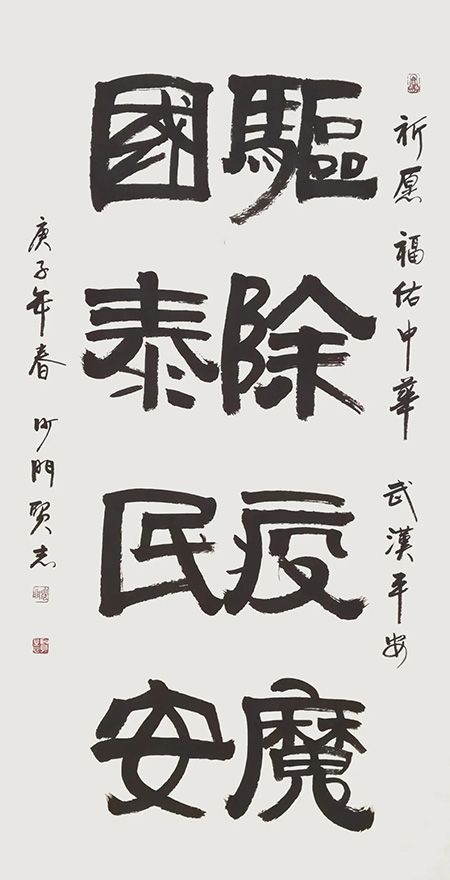 祈愿福佑中華 武漢平安
驅除疫魔
國泰民安
庚子年春 沙門賢志